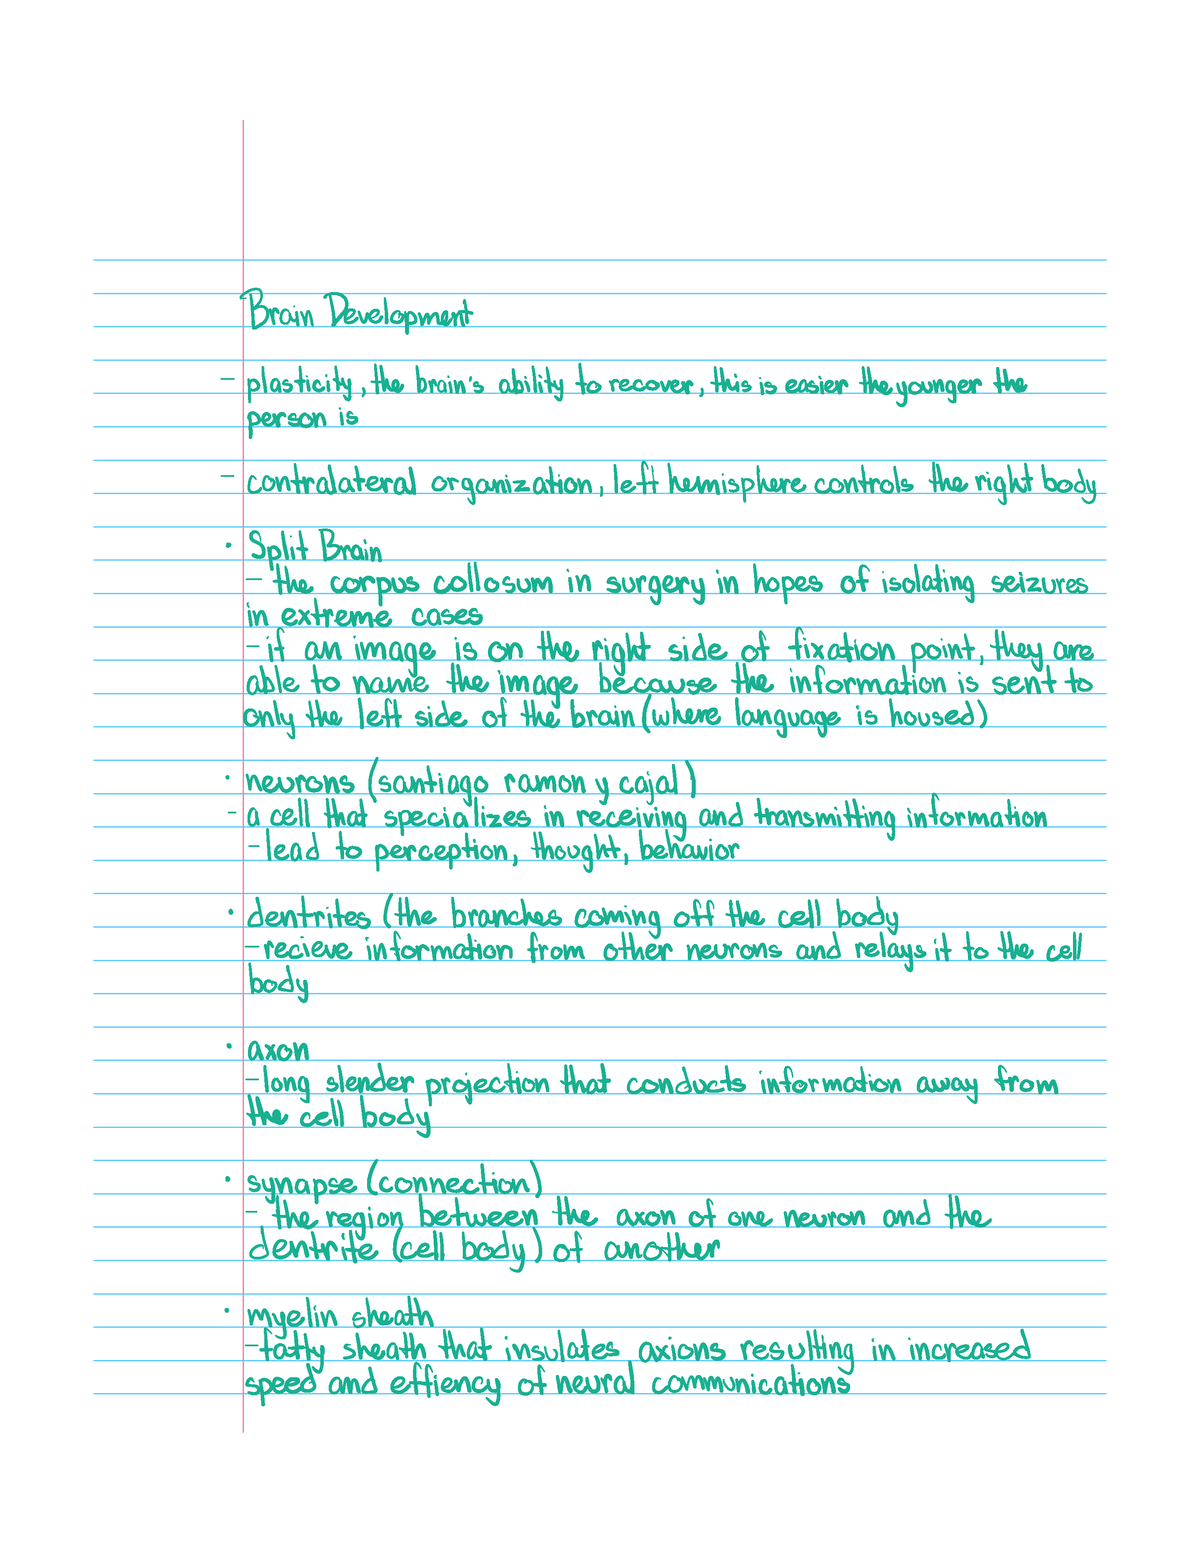 Brain Development
- plasticity, the brain's ability to recover, this is easier the younger the
person is
- contralateral organization, left hemisphere controls the right body
• Split Brain
- the corpus collosum in surgery in hopes of isolating seizures
in extreme cases
- if an image is on the right side of fixation point, they are
able to name the image because the information is sent to
only the left side of the brain (where language is housed)
• neurons (santiago ramon y cajal)
- a cell that specializes in receiving and transmitting information
- lead to perception, thought, behavior
• dentrites (the branches coming off the cell body
- recieve information from other neurons and relays it to the cell
body
• axon
- long slender projection that conducts information away from
the cell body
• synapse (connection)
- the region between the axon of one neuron and the
dentrite (cell body) of another
• myelin sheath
- fatty sheath that insulates axions resulting in increased
speed and effiency of neural communications